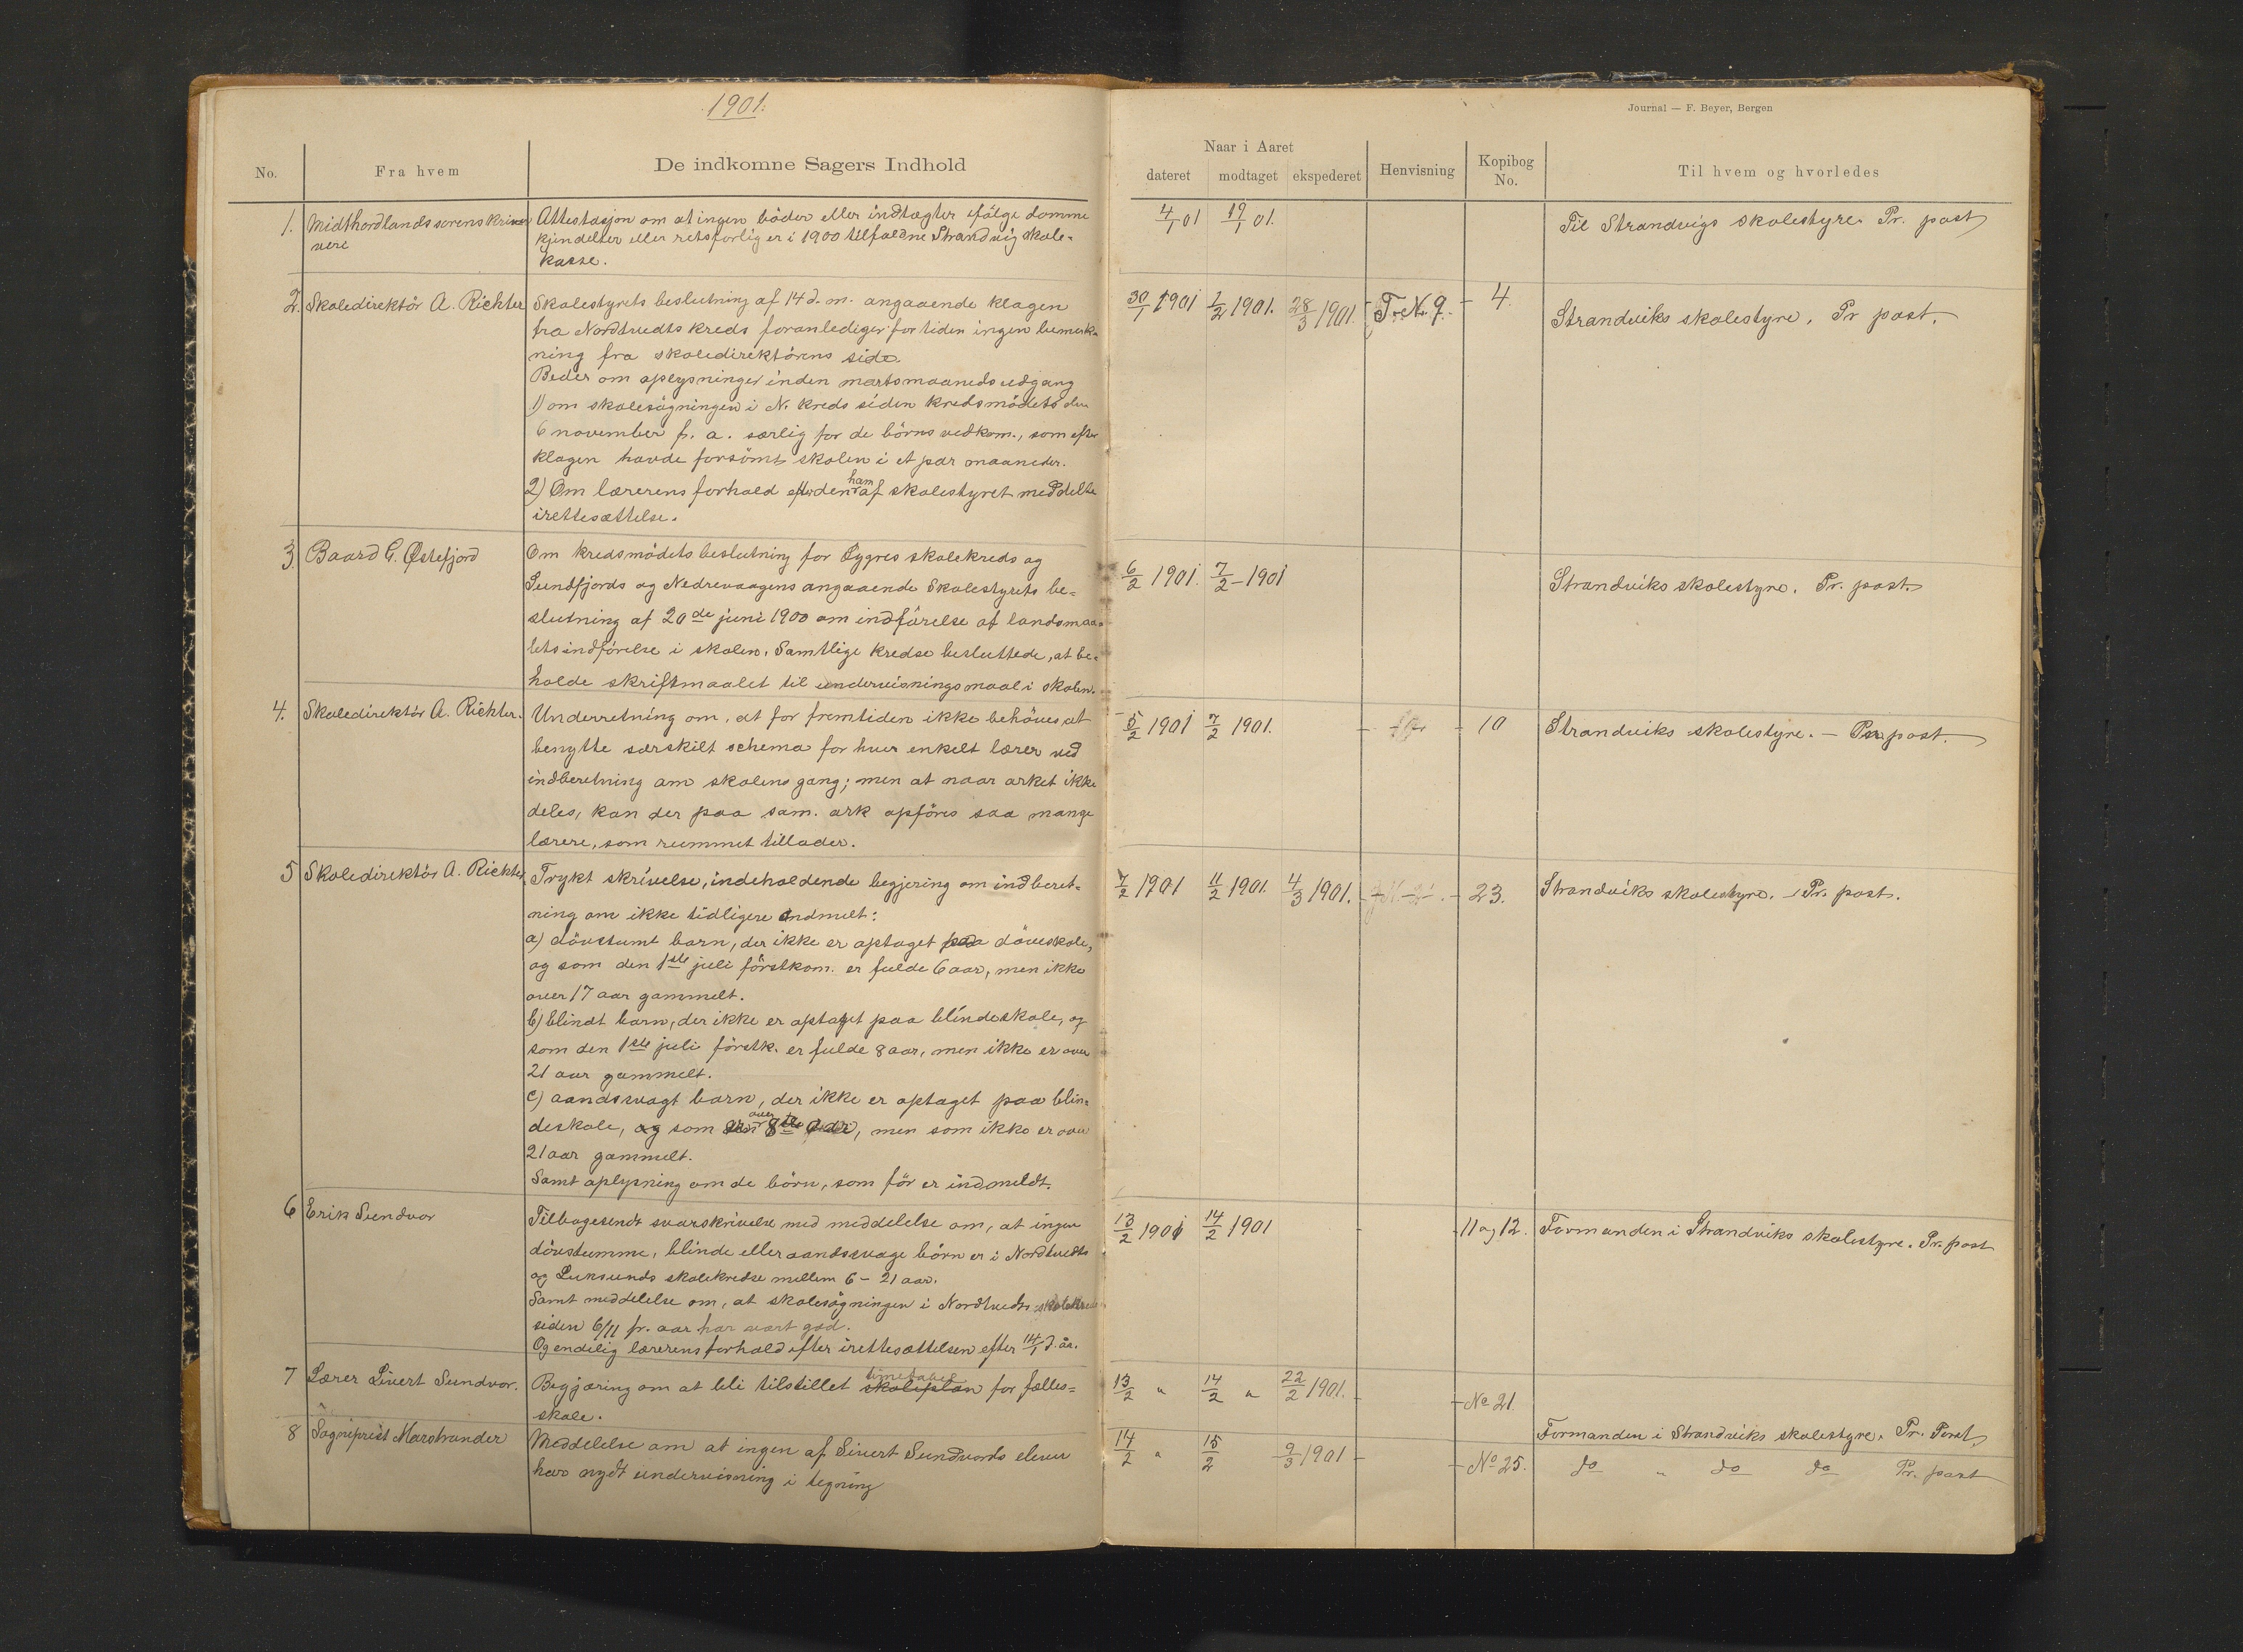 1901.
Journal — F. Beyer, Bergen
No.
Fra hvem
De indkomne Sagers Indhold
Naar i Aaret
dateret
modtaget
ekspederet
Henvisning
Kopibog
No.
Til hvem og hvorledes
1. Midthordlands sorenskriver
Attestasjon om at ingen böder eller indtægter ifölge domme
kjendelser eller retsforlig er i 1900 tilfaldne Strandvig skole-
kasse.
4/1 01 19/1 01.
Til Strandvigs skolestyre. Pr. post
2. Skoledirektör A. Richter
Skolestyrets beslutning af 14 d. m. angaaende klagen
fra Nordtvedts kreds foranlediger for tiden ingen bemerk-
ning fra skoledirektörens side.
Beder om oplysninger inden martsmaaneds udgang
1) om skolesögningen i N. kreds siden kredsmödets den
6 november f. a. særlig for de börns vedkom., som efter
klagen havde forsömt skolen i et par maaneder.
2) Om lærerens forhold efter den ham af skolestyret meddelte
irettesættelse.
30/1 1901 1/2 1901. 28/3 1901. F. N. 9. 4.
Strandviks skolestyre. Pr post.
3. Baard G. Østefjord
Om kredsmödets beslutning for Øygres skolekreds og
Sundfjords og Nedrevaagens angaaende Skolestyrets be-
slutning af 20de juni 1900 om indförelse af landsmaa-
lets indförelse i skolen. Samtlige kredse besluttede, at be-
holde skriftmaalet til undervisningsmaal i skolen.
6/2 1901. 7/2 - 1901
Strandviks skolestyre. Pr. post.
4. Skoledirektör A. Richter.
Underretning om, at for fremtiden ikke behöves at
benytte særskilt schema for hver enkelt lærer ved
indberetning om skolens gang; men at naar arket ikke
deles, kan der paa sam. ark opföres saa mange
lærere, som rummet tillader.
5/2 1901 7/2 1901. 10
Strandviks skolestyre. — Pr. post.
5 Skoledirektör A. Richter.
Trykt skrivelse, indeholdende begjering om indberet-
ning om ikke tidligere indmelt:
a) dövstumt barn, der ikke er optaget paa döveskole,
og som den 1ste juli förstkom. er fulde 6 aar, men ikke
over 17 aar gammelt.
b) blindt barn, der ikke er optaget paa blindeskole, og
som den 1ste juli förstk. er fulde 8 aar, men ikke er over
21 aar gammelt.
c) aandssvagt barn, der ikke er optaget paa blin-
deskole, og som over 8 aar, men som ikke er over
21 aar gammelt.
Samt oplysning om de börn, som för er indmeldt.
7/2 1901 11/2 1901. 4/3 1901. 23.
Strandviks skolestyre. Pr. post.
6 Erik Sundvor
Tilbagesendt svarskrivelse med meddelelse om, at ingen
dövstumme, blinde eller aandssvage börn er i Nordtvedts
og Luksunds skolekredse mellem 6 - 21 aar.
Samt meddelelse om, at skolesögningen i Nordtvedts skolekreds
siden 6/11 fr. aar har vært god.
Og endelig lærerens forhold efter irettesættelsen efter 14/1 d. år.
13/2 1901 14/2 1901 11 og 12.
Formanden i Strandviks skolestyre. Pr. post
7 Lærer Sivert Sundvor.
Begjæring om at bli tilstillet timetabel skoleplan for fælles-
skole.
13/2 " 14/2 " 22/2 1901. No 21.
Formanden i Strandviks skolestyre. Pr. Post
8 Sogneprest Marstrander
Meddelelse om at ingen af Sivert Sundvors elever
har nydt undervisning i tegning
14/2 " 15/2 9/3 1901 No 25.
do " do do Pr. post